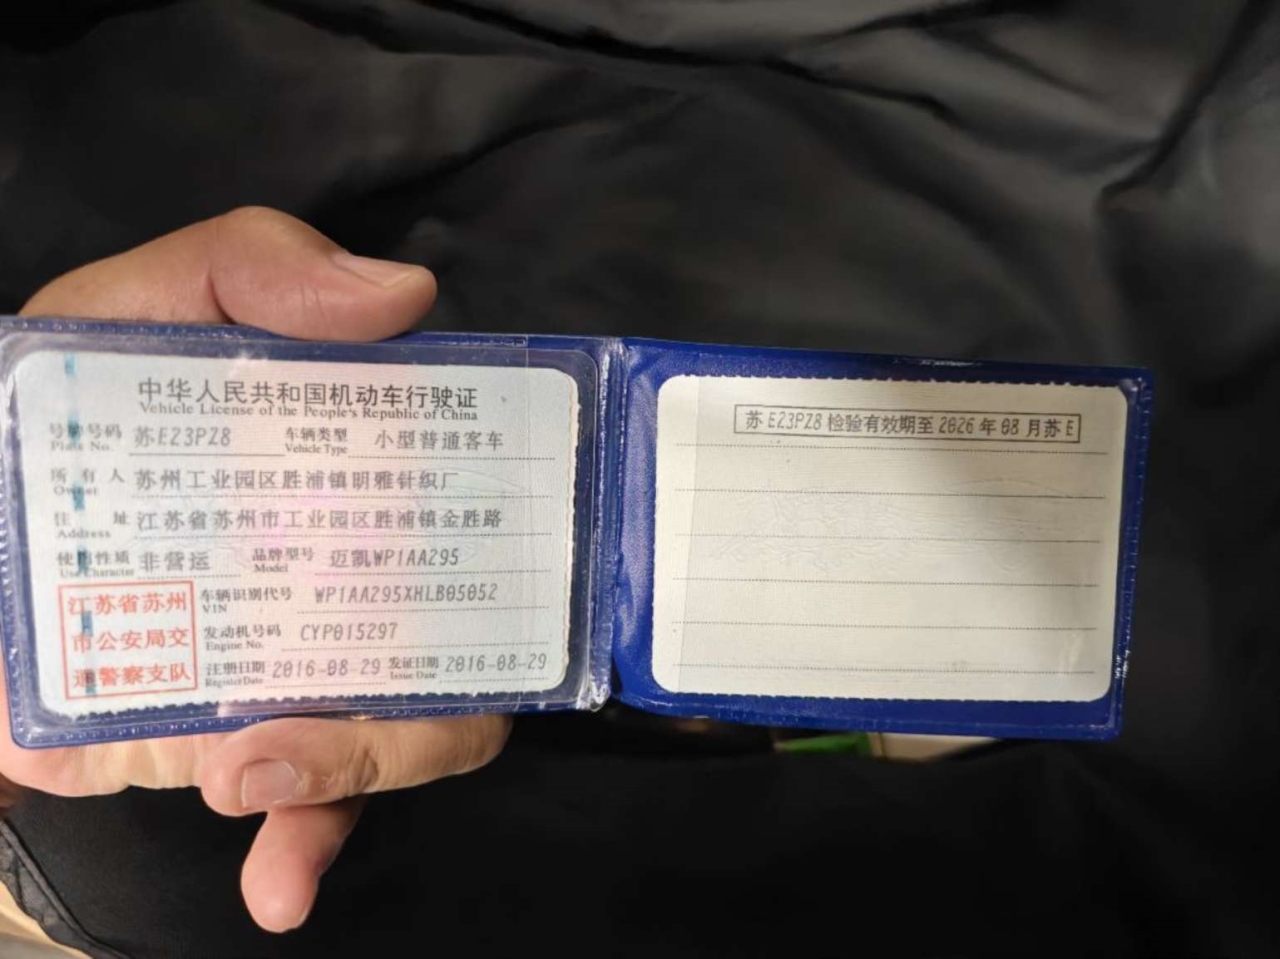 中华人民共和国机动车行驶证
Vehicle License of the People's Republic of China
号牌号码 苏E23PZ8 车辆类型 小型普通客车
Plate No. Vehicle Type
所有人 苏州工业园区胜浦镇明雅针织厂
Owner
住址 江苏省苏州市工业园区胜浦镇金胜路
Address
使用性质 非营运 品牌型号 迈凯WP1AA295
Use Character Model
江苏省苏州
市公安局交
通警察支队
车辆识别代号 WP1AA295XHLB05052
VIN
发动机号码 CYP015297
Engine No.
注册日期 2016-08-29 发证日期 2016-08-29
Register Date Issue Date
苏E23PZ8检验有效期至2026年08月苏E